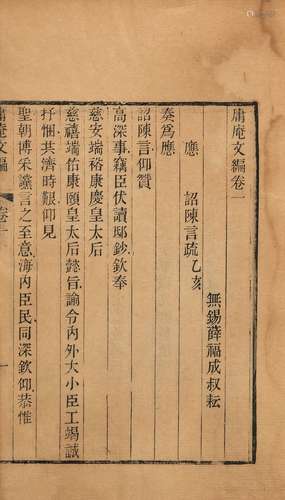 庸庵文編卷一
無錫薛福成叔耘
應詔陳言疏乙亥
奏爲應
詔陳言仰贊
高深事竊臣伏讀邸鈔欽奉
慈安端裕康慶皇太后
慈禧端佑康頤皇太后懿旨諭令內外大小臣工竭誠
抒悃共濟時艱仰見
聖朝博采讜言之至意海內臣民同深欽仰恭惟
庸庵文編
卷一
一